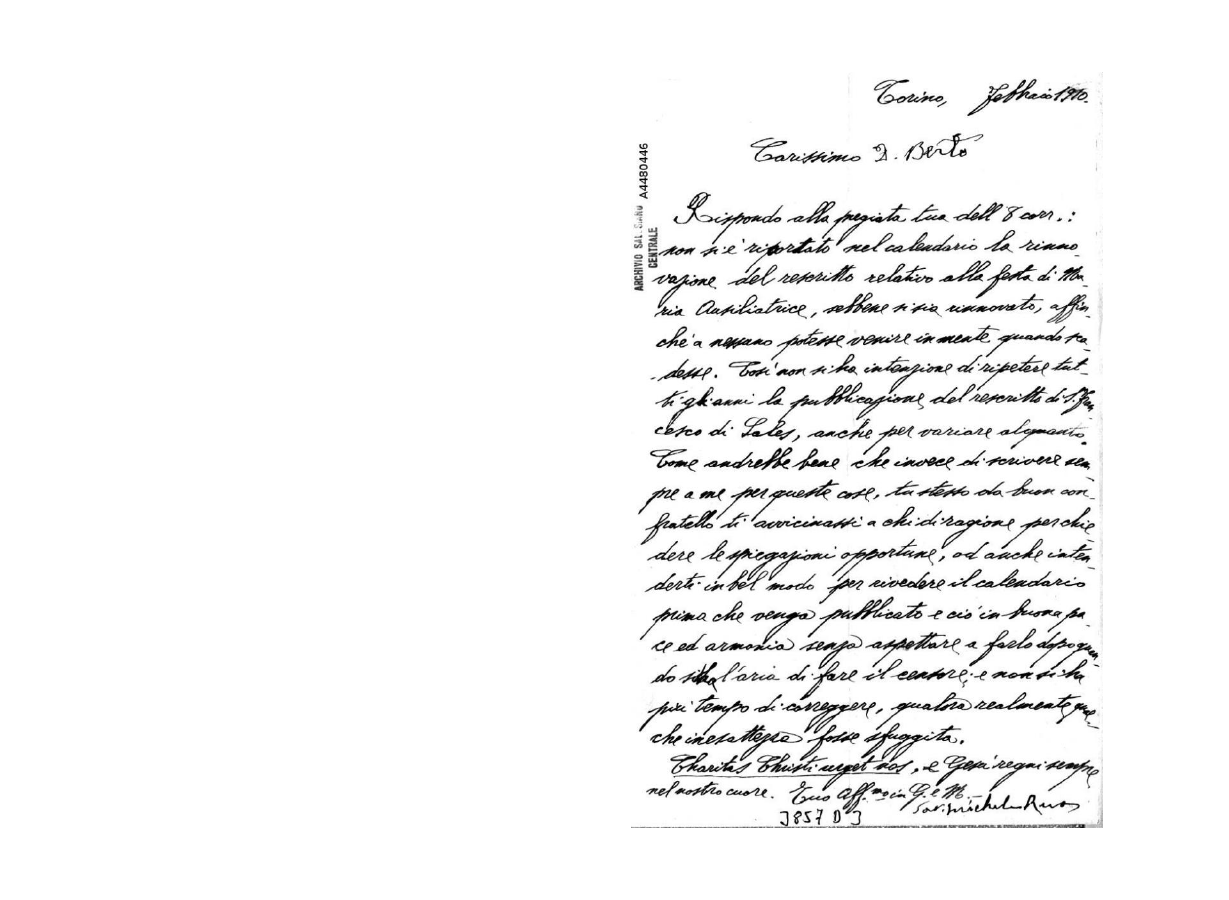 Torino, Febbraio 1910.
Carissimo D. Berto
A4480446
ARCHIVIO SALESIANO
CENTRALE
Rispondo alla pregiata tua dell' 8 corr.:
non si è riportato nel calendario la rinno
vazione del rescritto relativo alla festa di Ma-
ria Ausiliatrice, sebbene si sia rinnovato, affin-
ché a nessuno potesse venire in mente quando sca-
desse. Così non si ha intenzione di ripetere tut-
ti gli anni la pubblicazione del rescritto di S. Fran
cesco di Sales, anche per variare alquanto.
Come andrebbe bene che invece di scrivere sem
pre a me per queste cose, tu stesso da buon con-
fratello ti avvicinassi a chi di ragione per chie
dere le spiegazioni opportune, od anche inten-
derti in bel modo per rivedere il calendario
prima che venga pubblicato e ciò in buona pa-
ce ed armonia senza aspettare a farlo dopo quan-
do si ha l'aria di fare il censore; e non si ha
più tempo di correggere, qualora realmente qual
che inesattezza fosse sfuggita.
Charitas Christi urget nos, e Gesù regni sempre
nel nostro cuore. Tuo Aff.mo in G. e M.
Sac. Michele Rua
3857 D 3